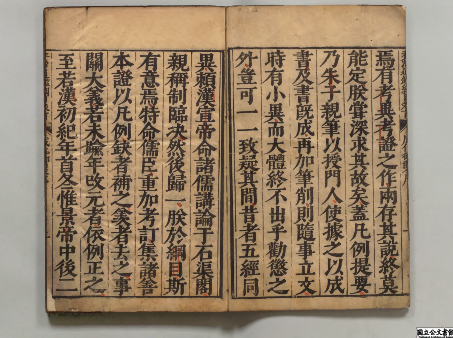 焉有考異考證之作兩存其說終莫
能定朕嘗深求其故矣蓋凡例提要
乃朱子親筆以授門人使據之以成
書及書既成再加筆削則隨事立文
時有小異而大體終不出乎勸懲之
外豈可一一致疑其間昔者五經同
異賴漢宣帝命諸儒講論于石渠閣
親稱制臨决然後歸一朕於綱目斯
有意焉特命儒臣重加考訂集諸善
本證以凡例缺者補之羨者去之事
關大義若未踰年改元者依例正之
至若漢初紀年首冬惟景帝中後二
國立公文書館